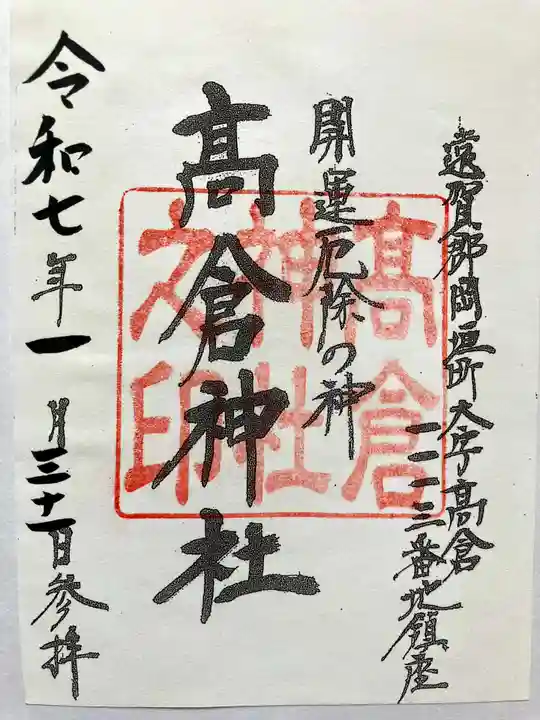 遠賀郡岡垣町大字髙倉
一一一三番地鎮座
開運厄除の神
髙倉神社
髙倉
神社
之印
令和七年一月三十一日参拝